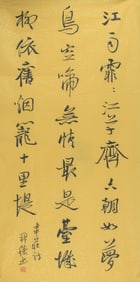 江雨霏〻江草齊六朝如夢
鳥空啼無情最是臺城
柳依舊烟籠十里堤
韋莊詩